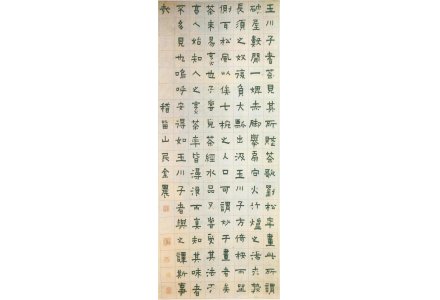 玉川子耆茶見其所賦茶歌劉松年畫此所謂
破屋數間一婢赤脚舉扇向火竹爐之湯未熟
長須之奴復負大瓢出汲玉川子方倚桉而坐
側耳松風以俟七椀之入口可謂妙于畫者矣
茶未易亯也予嘗見茶經水品又嘗受其法于
高人始知人之亯茶率皆漫浪而真知其味者
不多見也嗚呼安得如玉川子者與之譚斯事
哉
稽留山民金農